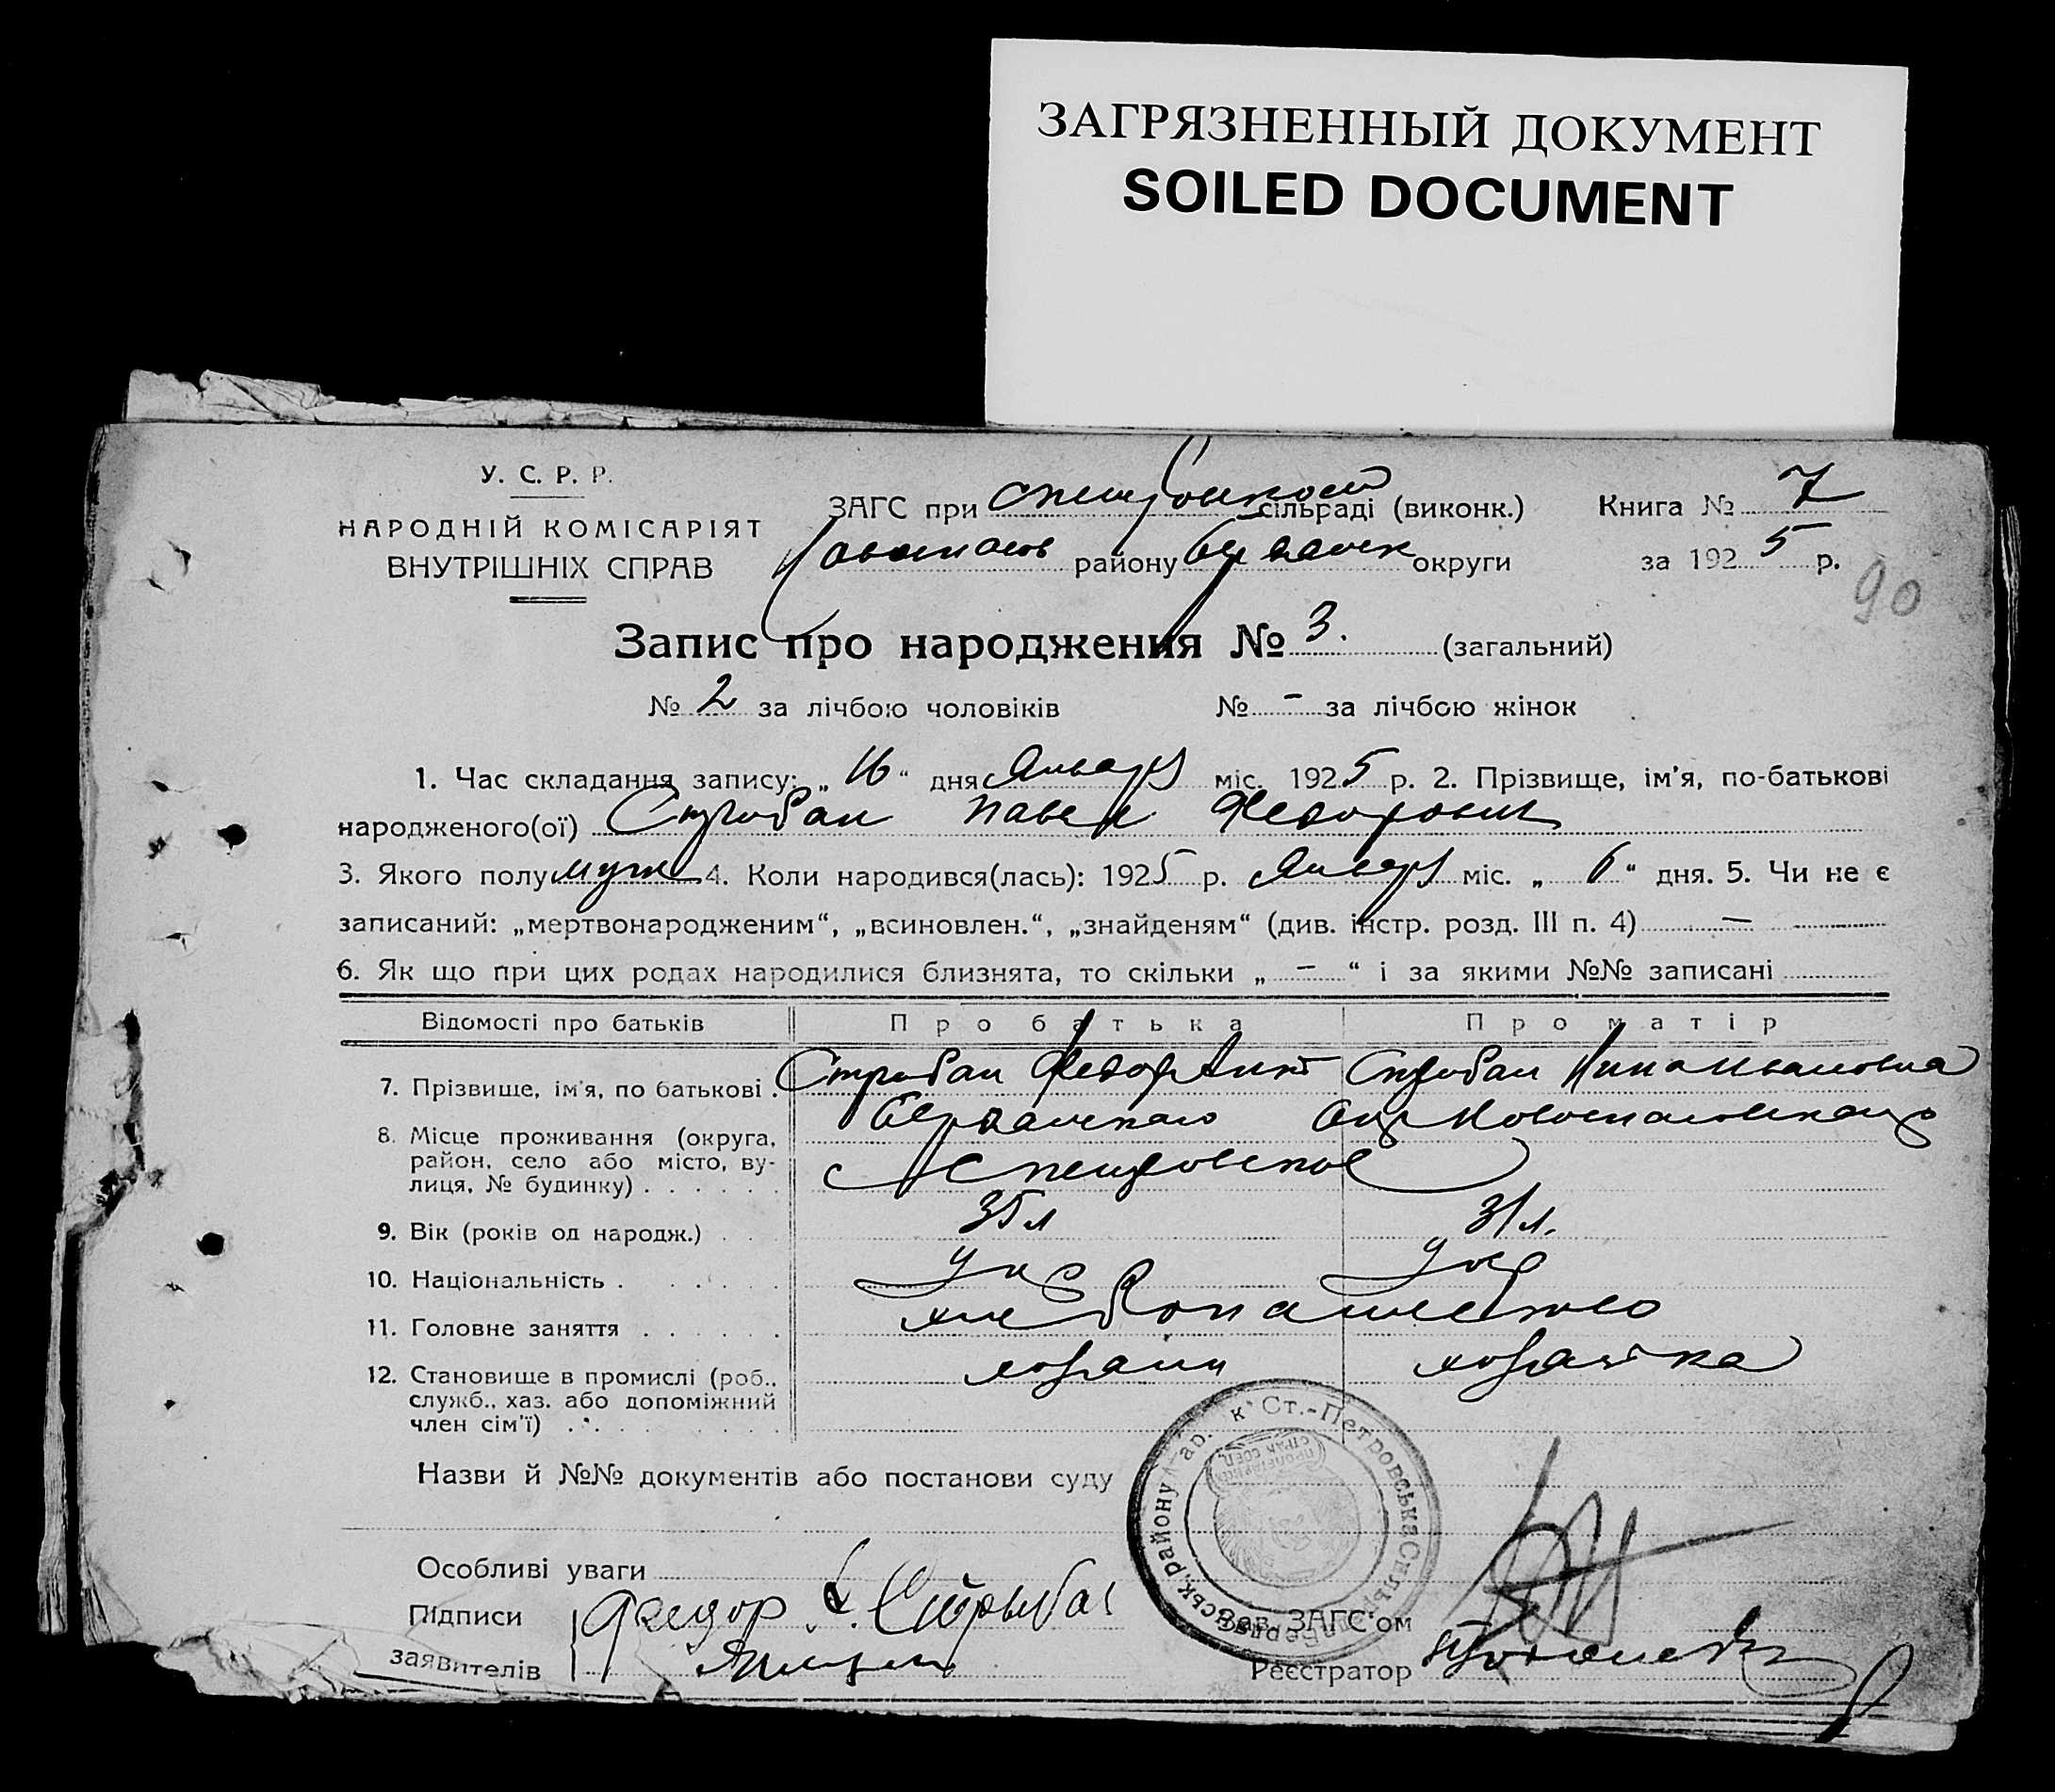 ЗАГРЯЗНЕННЫЙ ДОКУМЕНТ
SOILED DOCUMENT
У. С. Р. Р.
НАРОДНІЙ КОМІСАРІЯТ
ВНУТРІШНІХ СПРАВ
ЗАГС при сільраді (виконк.)
району Бердянск округи
Книга № 7
за 1925 р.
90
Запис про народження № 3. (загальний)
№ 2 за лічбою чоловіків № - за лічбою жінок
1. Час складання запису: „ 16 “ дня Января міс. 1925 р. 2. Прізвище, ім'я, по-батькові
народженого(ої) Стрибан Павел Федорович
3. Якого полу муж 4. Коли народився(лась): 1925 р. Января міс. „ 6 “ дня. 5. Чи не є
записаний: „мертвонародженим“, „всиновлен.“, „знайденям“ (див. інстр. розд. III п. 4) —
6. Як що при цих родах народилися близнята, то скільки „ — “ і за якими №№ записані
Відомості про батьків Про батька Про матір
7. Прізвище, ім'я, по батькові . Стрибан Федор Стрибан Ивановна
8. Місце проживання (округа, Бердянского Окр
район, село або місто, ву-
лиця, № будинку) . . . . . .
9. Вік (років од народж.) . . 35 л 31 л.
10. Національність . . . . . . Укр Укр
11. Головне заняття . . . . . . хлебопашество
12. Становище в промислі (роб., хозяин хозяйка
служб., хаз. або допоміжний
член сім'ї) . . . . . . . .
Назви й №№ документів або постанови суду
Особливі уваги
Підписи Федор
заявителів
Зав. ЗАГС'ом
Реєстратор
к Ст.-Петровська Сильрада Бердянськ. району